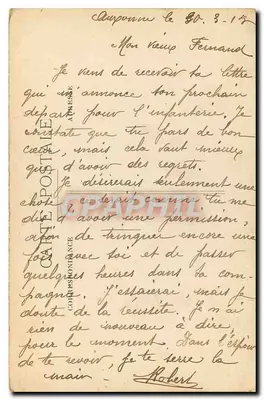 Auxonne le 20. 3. 15
Mon vieux Fernand
Je viens de recevoir ta lettre
qui m'annonce ton prochain
départ pour l'infanterie. Je
constate que tu pars de bon
cœur, mais cela vaut mieux
que d'avoir des regrets.
Je désirerais seulement une
chose, ce serait comme tu me
dis d'avoir une permission
afin de trinquer encore une
fois avec toi et de passer
quelques heures dans ta com-
pagnie. J'essaierai, mais je
doute de la réussite. Je n'ai
rien de nouveau à dire,
pour le moment. Dans l'espoir
de te revoir, je te serre la
main. Robert
CARTE POSTALE
CORRESPONDANCE
ADRESSE